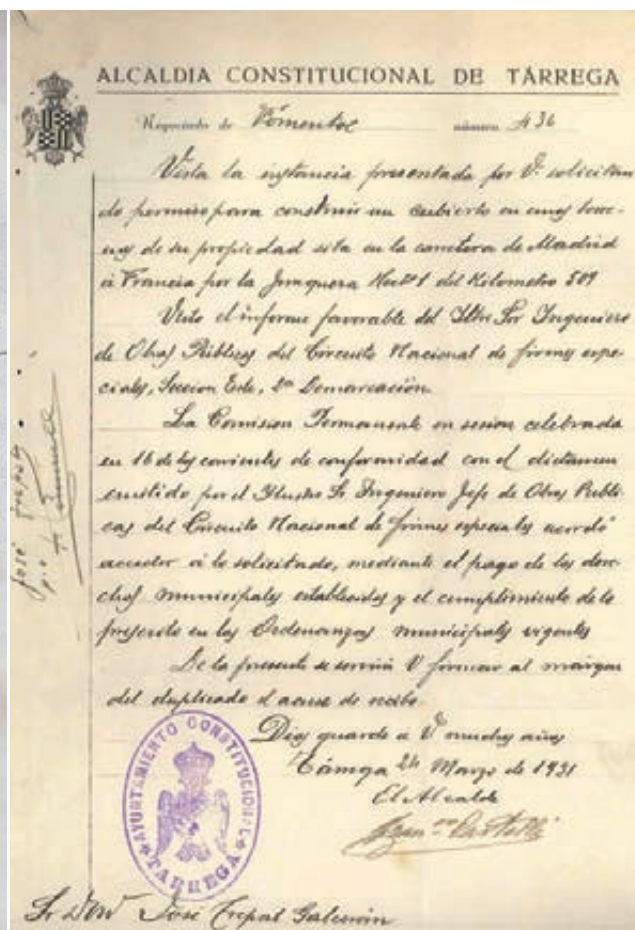 ALCALDIA CONSTITUCIONAL DE TÁRREGA
Negociado de Fomento número 436
Vista la instancia presentada por V. solicitan
do permiso para construir un cubierto en unos terre-
nos de su propiedad sita en la carretera de Madrid
á Francia por la Junquera del Kilometro 509
Visto el informe favorable del Iltre Sor Ingeniero
de Obras Públicas del Circuito Nacional de firmes espe-
ciales, Seccion Este, 2ª Demarcación.
La Comision Permanente en sesion celebrada
en 16 de los corrientes de conformidad con el dictamen
emitido por el Ilustre Sr. Ingeniero Jefe de Obras Publi-
cas del Circuito Nacional de firmes especiales acordó
acceder á lo solicitado, mediante el pago de los dere-
chos municipales establecidos y el cumplimiento de lo
prescrito en las Ordenanzas municipales vigentes
De la presente se servirá V firmar al margen
del duplicado el acuse de recibo.
Dios guarde á V muchos años
Tárrega 24 Marzo de 1931
El Alcalde
AYUNTAMIENTO CONSTITUCIONAL
TARREGA
Sr Don José Trepat Galceran
José Trepat